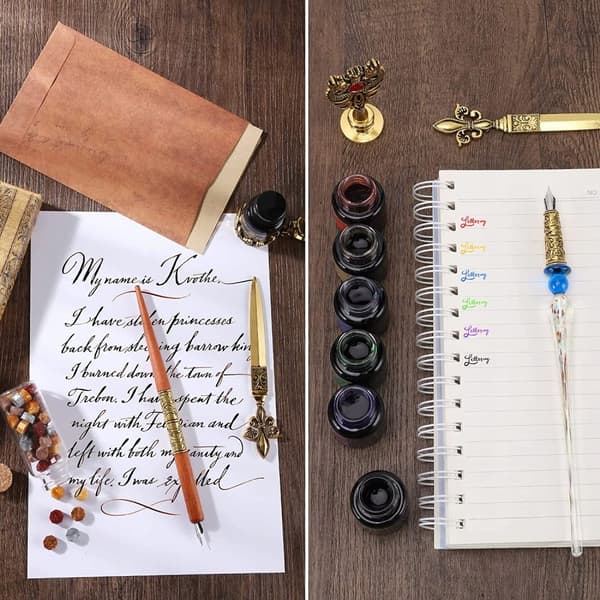 My name is Kvothe.
I have stolen princesses
back from sleeping barrow kings
I burned down the town of
Trebon. I have spent the
night with Felurian and
left with both my sanity and
my life. I was expelled
NO
Lettering
Lettering
Lettering
Lettering
Lettering
Lettering